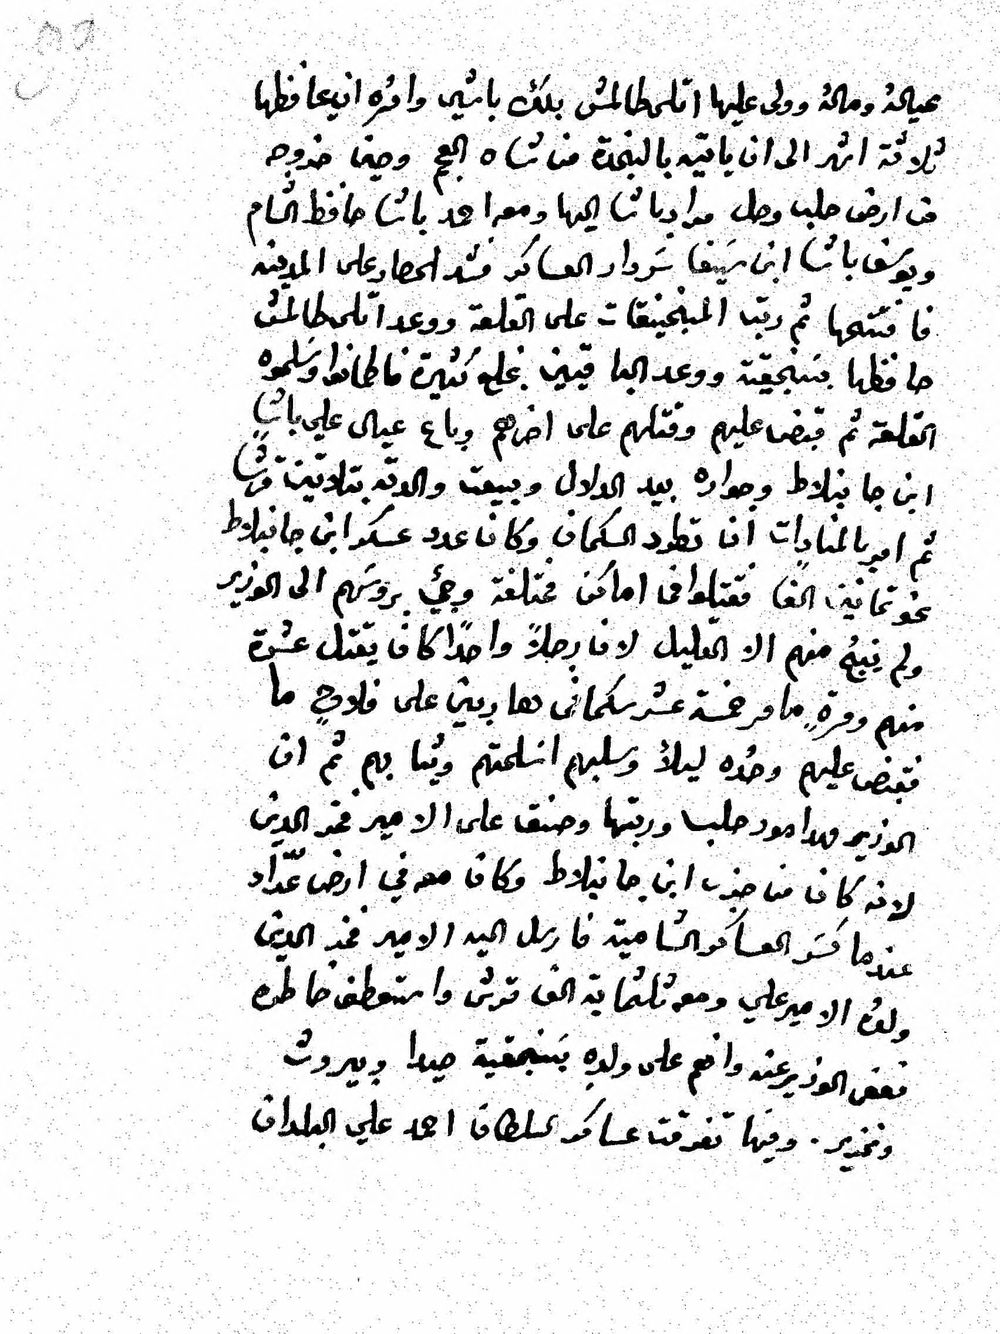 عياله وماله وولى عليها اتلى طالمش بلك باشي وامره ان يحافظها
ثلاثة اشهر الى ان ياتيه بالنجدة من شاه العجم وحين خروجه
من ارض حلب وصل مراد باشا اليها ومعه احمد باشا حافظ الشام
ويوسف باشا ابن سَيفا سَردار العساكر فشد الحصار على المدينه
فافتتحها ثم رتب المنجنيقات على القلعة ووعد اتلى طالمش
حافظها بسَنجقية ووعد الباقيين بخلع كثيرة فاطمانوا وسَلموه
القلعة ثم قبض عليهم وقتلهم على اخرهم وباع عيال علي باشا
ابن جانبلاط وجواره بيد الدلال وبيعت والدته بثلاثين قرشا
ثم امر بالمنادات ان تطرد السكمان وكان عدد عسكر ابن جانبلاط
نحو ثمانين الف فقتلوا فى اماكن مختلفة وجئ بروسَهم الى الوزير
ولم ينج منهم الا القليل لان رجلاً واحدًا كان يقتل عشرة
منهم ومرةٍ ما مر خمسة عشر سكمانى هاربين على فلاحٍ ما
فقبض عليهم وحده ليلاً وسلبهم اسَلحتهم وثيابهم ثم ان
الوزير مهد امور حلب ورتبها وحنق على الامير فخر الدين
لانه كان من حزب ابن جانبلاط وكان معه في ارض عرّاد
عندما كسَر العساكر الشامية فارسل اليه الامير فخر الدين
ولده الامير علي ومعه ثلثماية الف قرش واستعطف خاطره
فعفى الوزير عنه وانعم على ولدِه بسَنجقية صيدا وبيروت
وغزير . وفيها تفرقت عساكر السلطان احمد علي البلدان